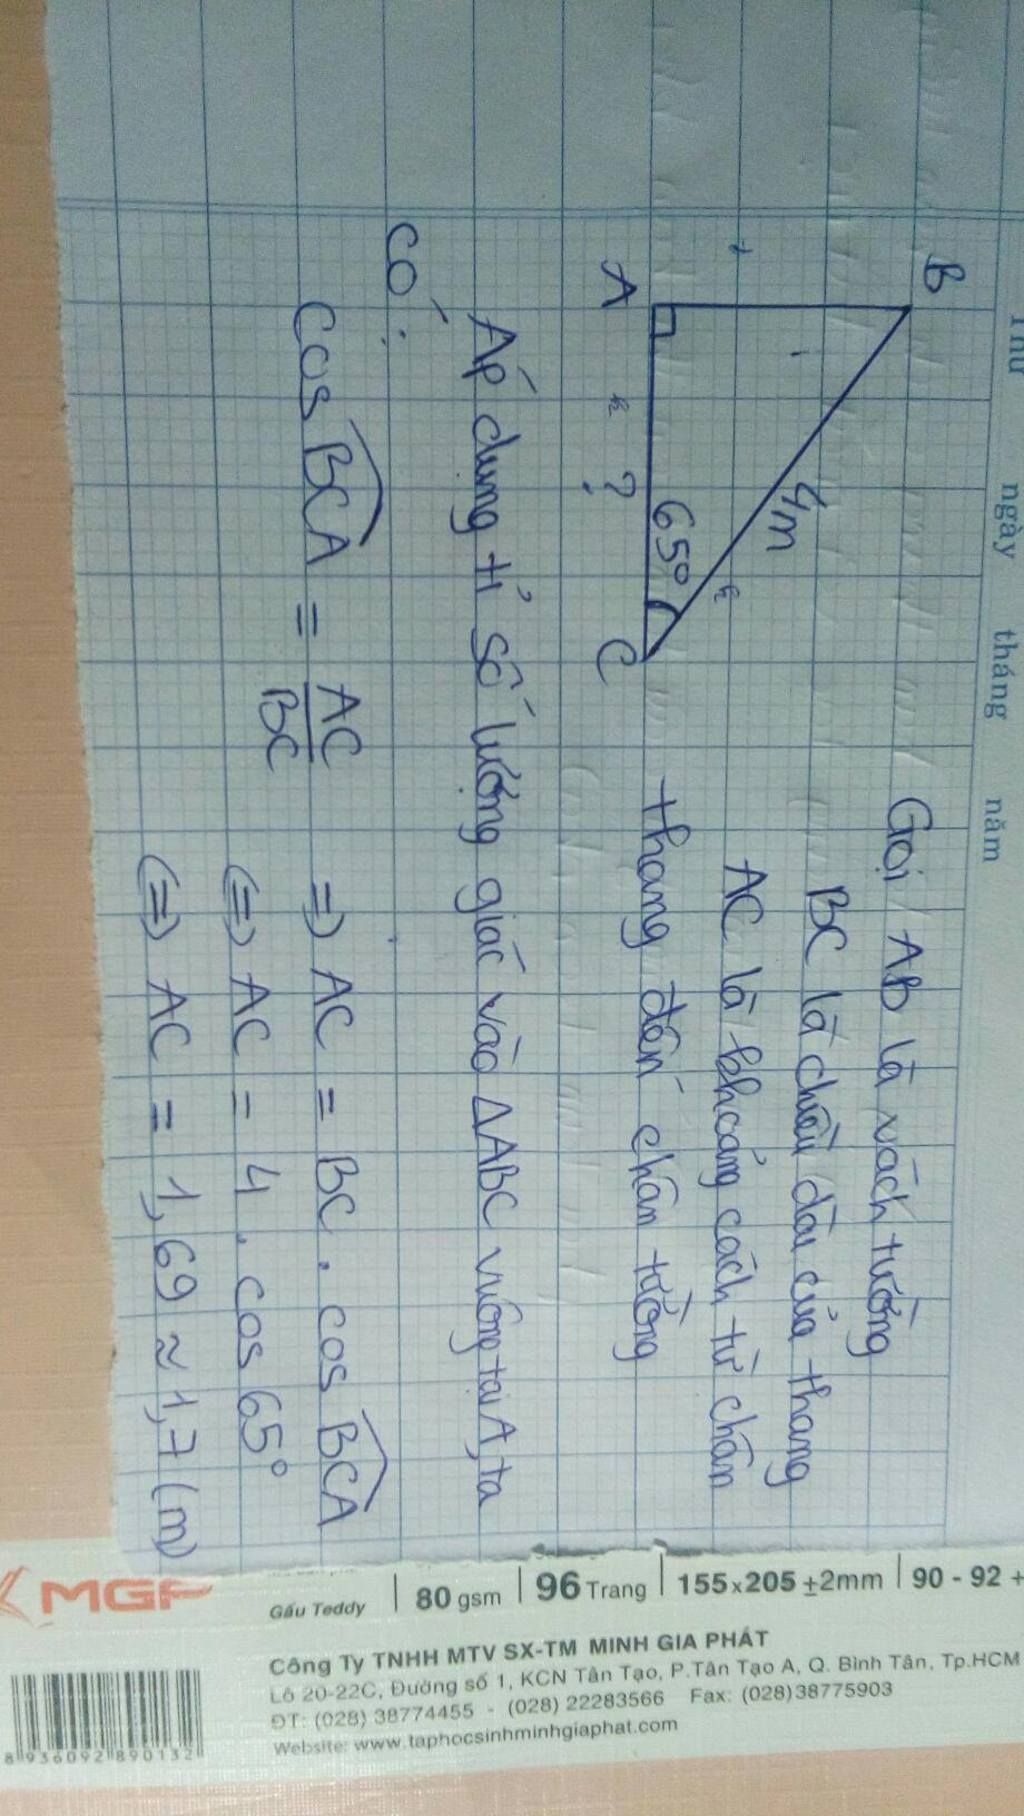 Thứ ngày tháng năm
B
4m
65°
A
?
C
Gọi AB là vách tường
BC là chiều dài của thang
AC là khoảng cách từ chân
thang đến chân tường
Áp dụng tỉ số lượng giác vào ΔABC vuông tại A, ta
có:
Cos BCA = AC/BC => AC = BC . cos BCA
<=> AC = 4 . cos 65°
<=> AC = 1,69 ≈ 1,7 (m)
MGP
Gấu Teddy | 80 gsm | 96 Trang | 155x205 ±2mm | 90 - 92 +
Công Ty TNHH MTV SX-TM MINH GIA PHÁT
Lô 20-22C, Đường số 1, KCN Tân Tạo, P.Tân Tạo A, Q. Bình Tân, Tp.HCM
ĐT: (028) 38774455 - (028) 22283566 Fax: (028)38775903
Website: www.taphocsinhminhgiaphat.com
8 936092 890132